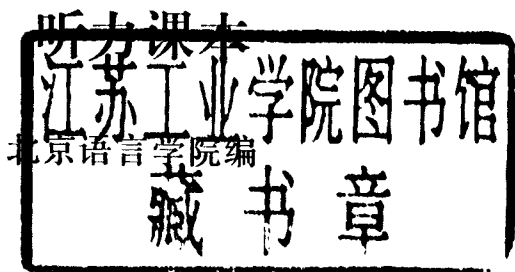 听力课本
江苏工业学院图书馆
北京语言学院编
藏书章